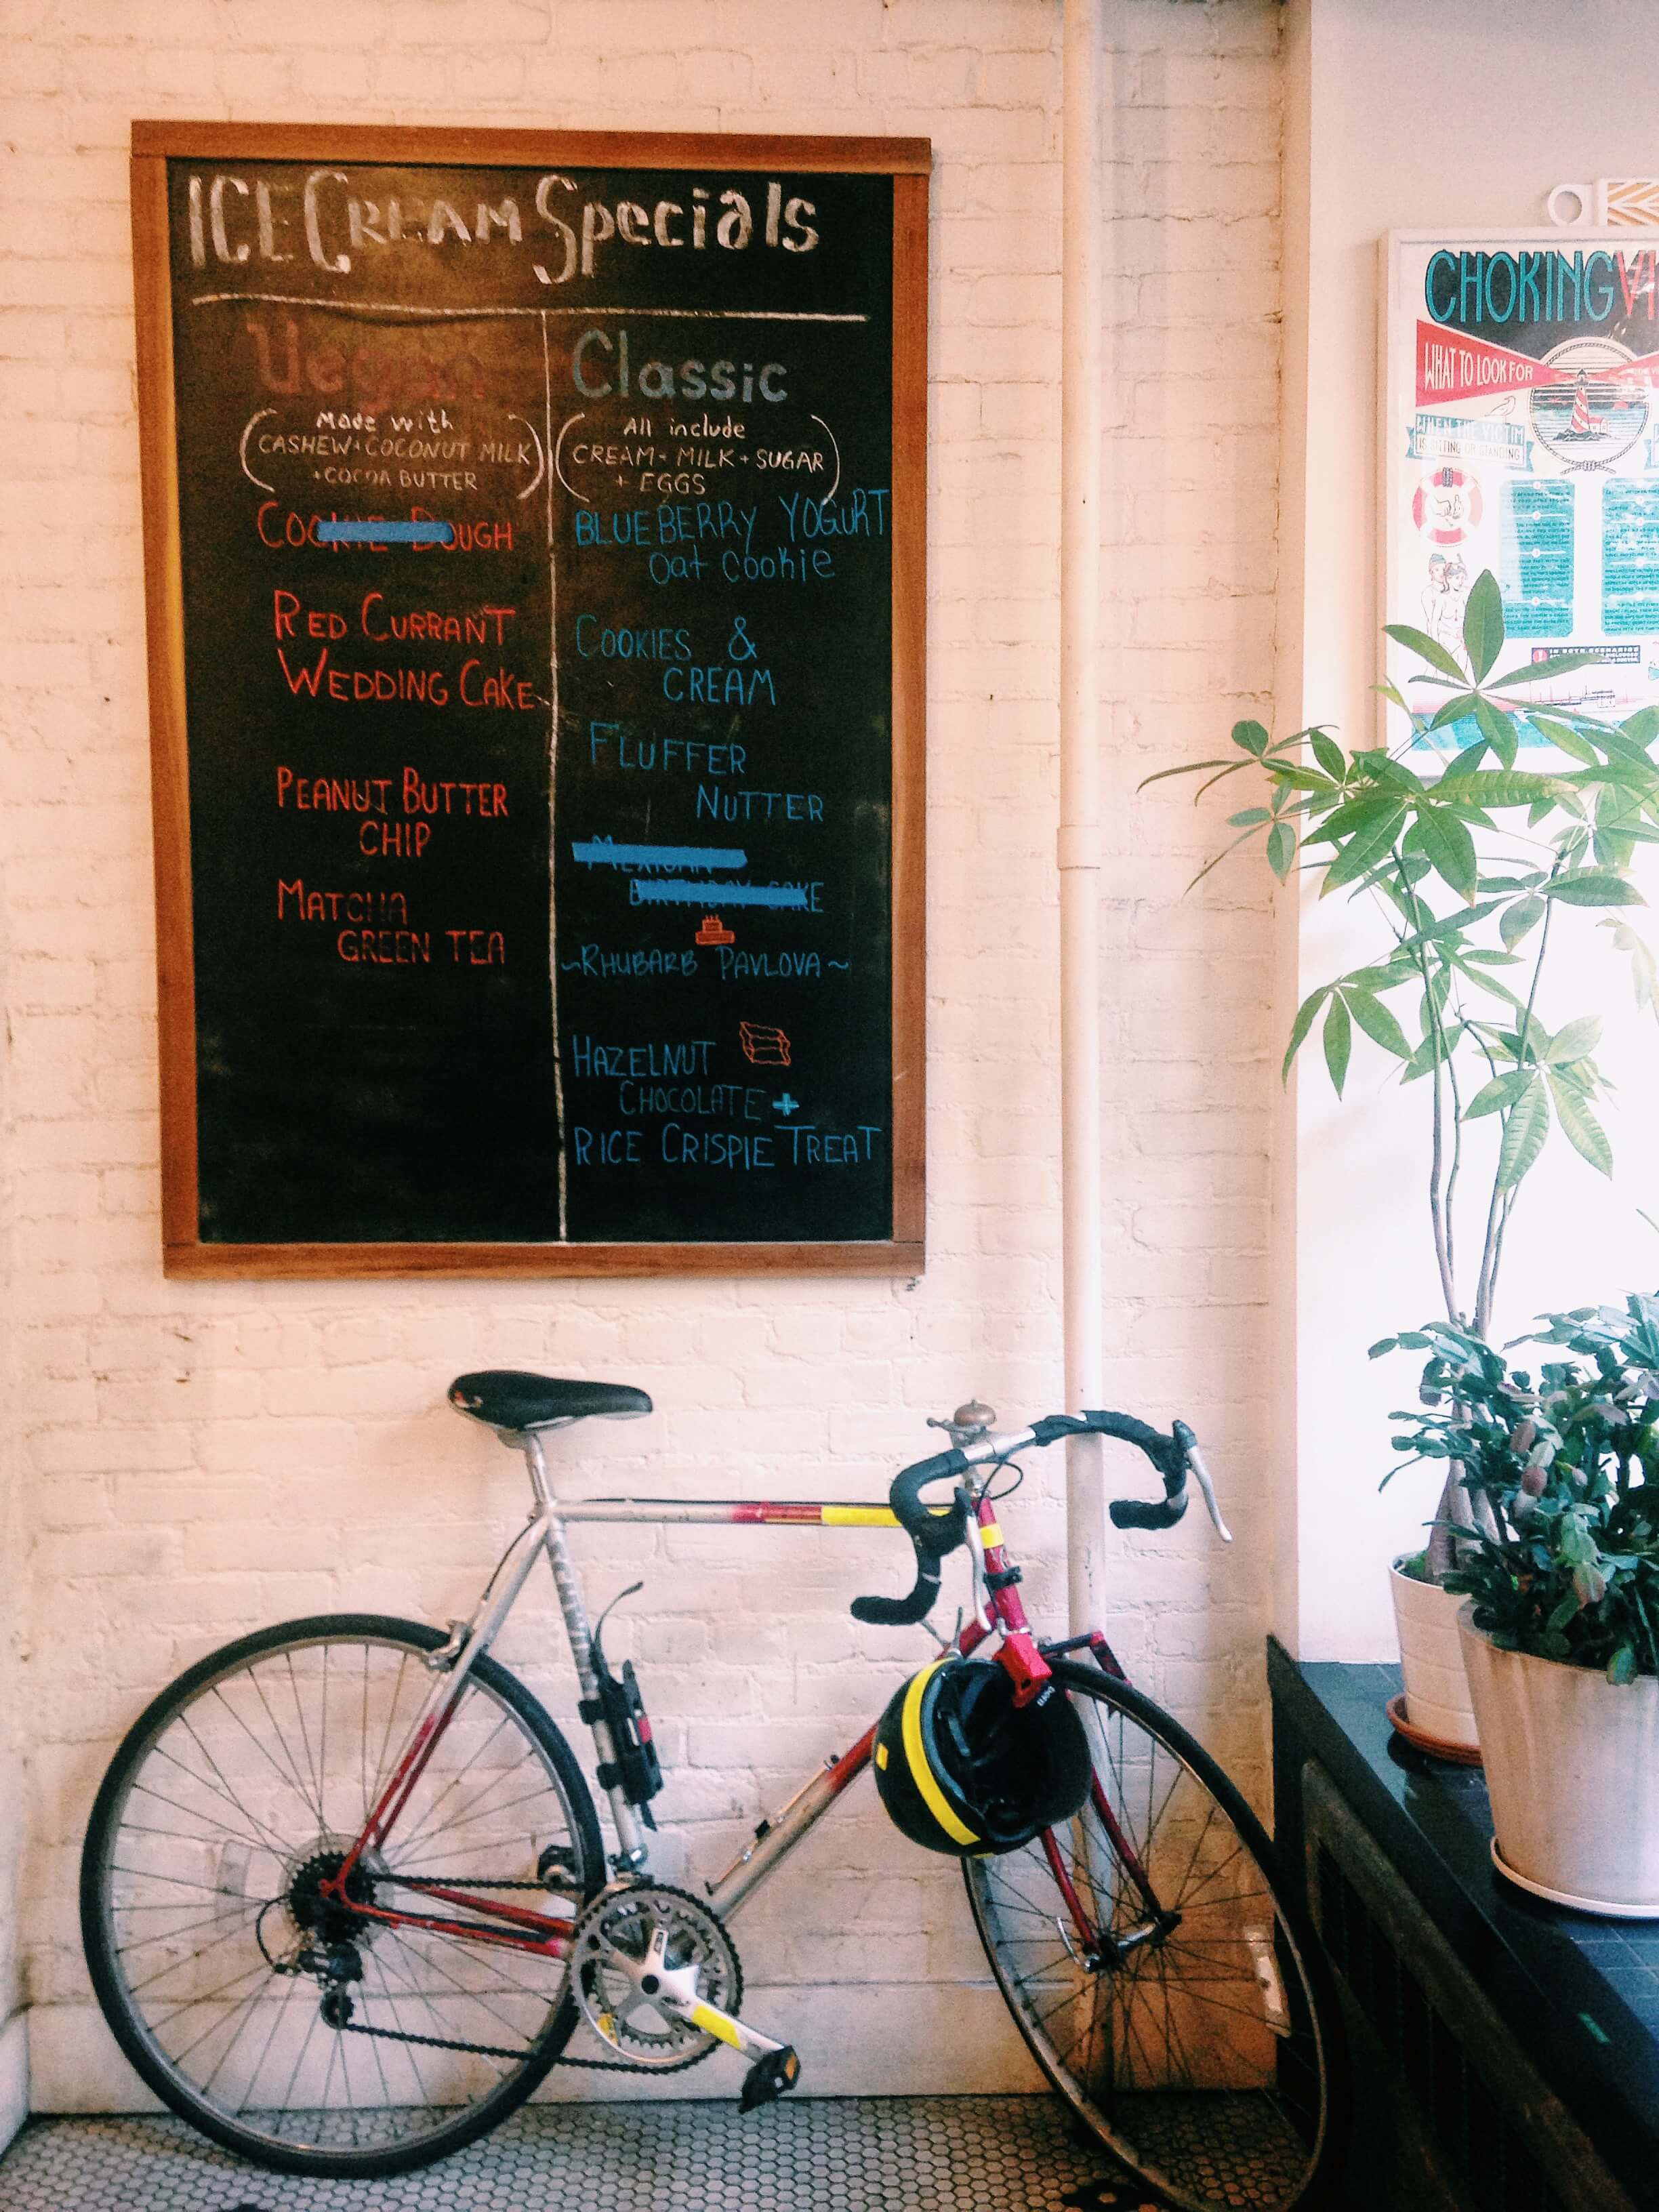 ICE CREAM Specials
Vegan
Made with
CASHEW + COCONUT MILK
+ COCOA BUTTER
COOKIE DOUGH
RED CURRANT
WEDDING CAKE
PEANUT BUTTER
CHIP
MATCHA
GREEN TEA
Classic
All include
CREAM + MILK + SUGAR
+ EGGS
BLUEBERRY YOGURT
Oat Cookie
COOKIES &
CREAM
FLUFFER
NUTTER
MEXICAN
BIRTHDAY CAKE
~RHUBARB PAVLOVA~
HAZELNUT
CHOCOLATE +
RICE CRISPIE TREAT
CHOKING
WHAT TO LOOK FOR
WHEN THE VICTIM
IS SITTING OR STANDING
IN BOTH SCENARIOS